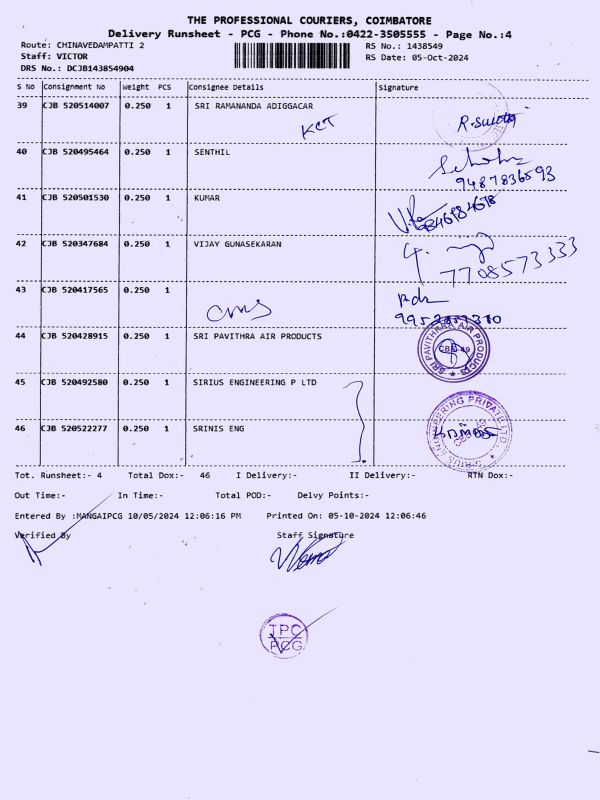 THE PROFESSIONAL COURIERS, COIMBATORE
Delivery Runsheet - PCG - Phone No.:0422-3505555 - Page No.:4
Route: CHINAVEDAMPATTI 2 RS No.: 1438549
Staff: VICTOR RS Date: 05-Oct-2024
DRS No.: DCJB143854904
S No Consignment No Weight PCS Consignee Details Signature
39 CJB 520514007 0.250 1 SRI RAMANANDA ADIGGACAR
KCT
40 CJB 520495464 0.250 1 SENTHIL
9487836593
41 CJB 520501530 0.250 1 KUMAR
42 CJB 520347684 0.250 1 VIJAY GUNASEKARAN
7708573333
43 CJB 520417565 0.250 1
44 CJB 520428915 0.250 1 SRI PAVITHRA AIR PRODUCTS
SRI PAVITHRA AIR PRODUCTS
45 CJB 520492580 0.250 1 SIRIUS ENGINEERING P LTD
46 CJB 520522277 0.250 1 SRINIS ENG
SIRIUS ENGINEERING PRIVATE LTD.
Tot. Runsheet:- 4 Total Dox:- 46 I Delivery:- II Delivery:- RTN Dox:-
Out Time:- In Time:- Total POD:- Delvy Points:-
Entered By :MANGAIPCG 10/05/2024 12:06:16 PM Printed On: 05-10-2024 12:06:46
Verified By Staff Signature
TPC
PCG